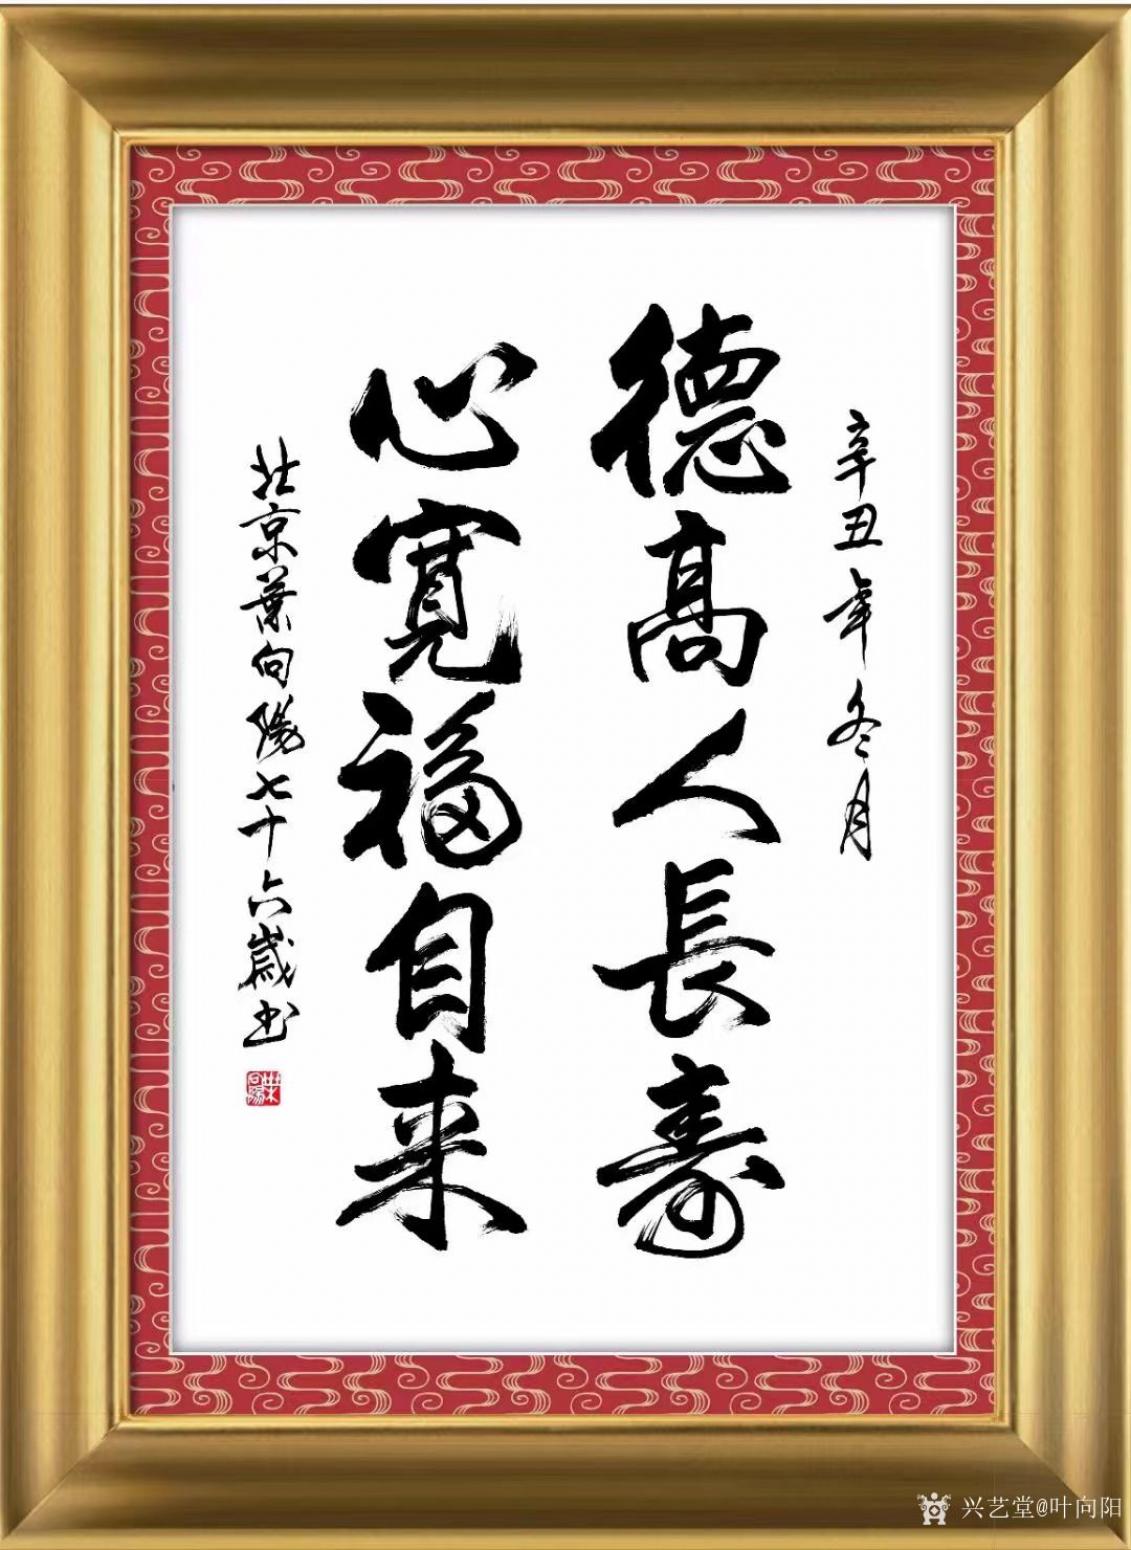 辛丑年冬月
德高人長壽
心寬福自来
北京葉向陽七十六歲书
葉向陽
兴艺堂@叶向阳